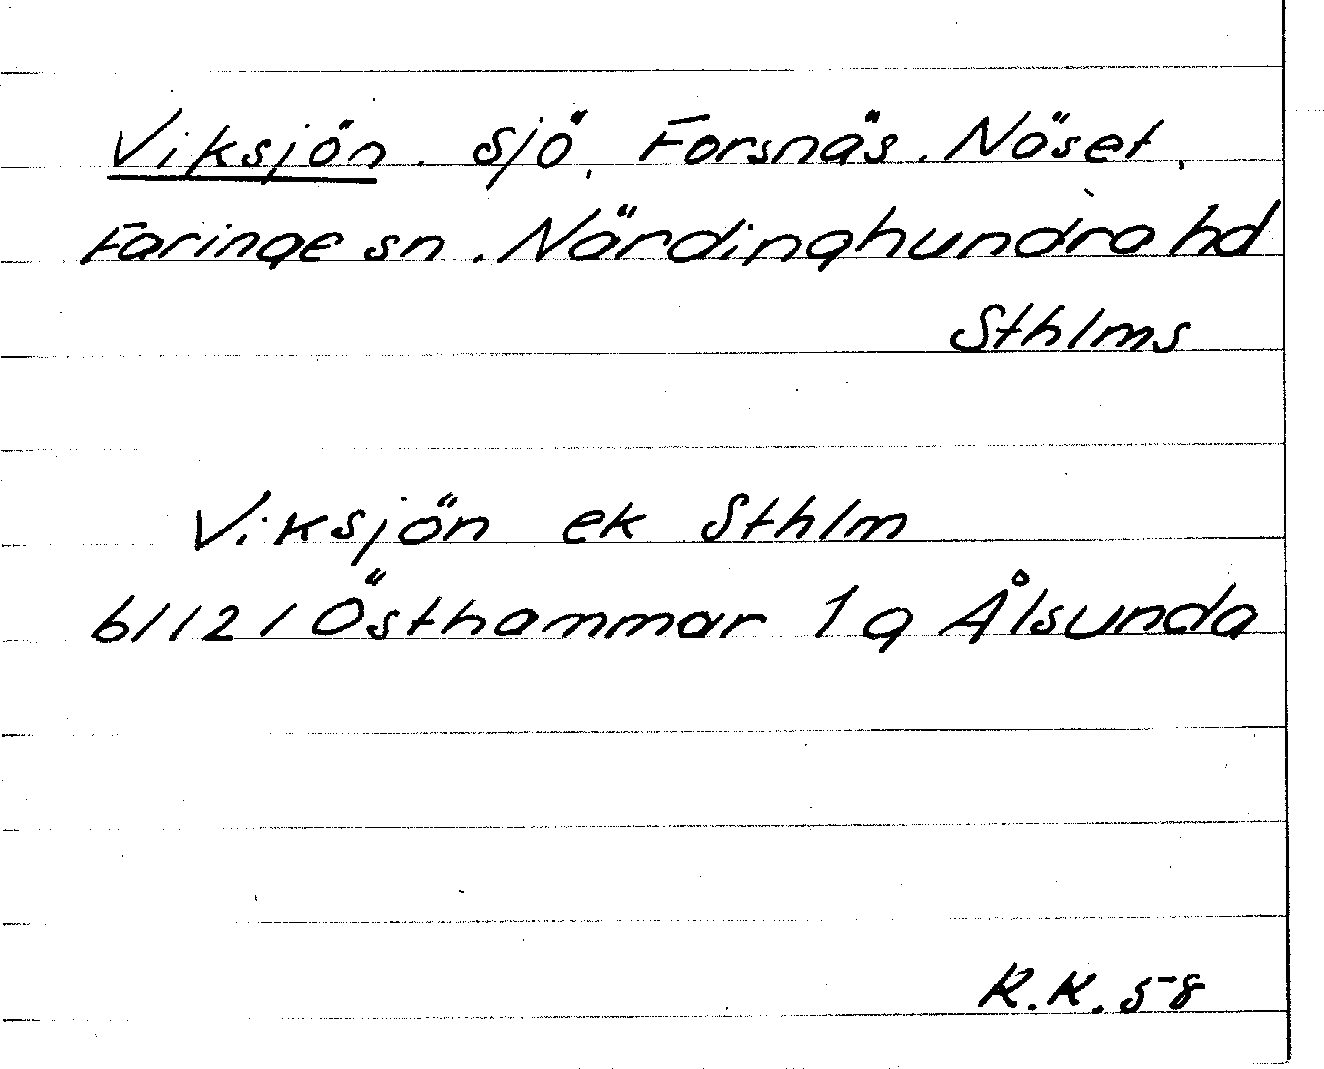 Viksjön. sjö, Forsnäs. Näset,
Faringe sn. Närdinghundra hd
Sthlms
Viksjön ek Sthlm
61121 Östhammar 1g Ålsunda
R.K. 58